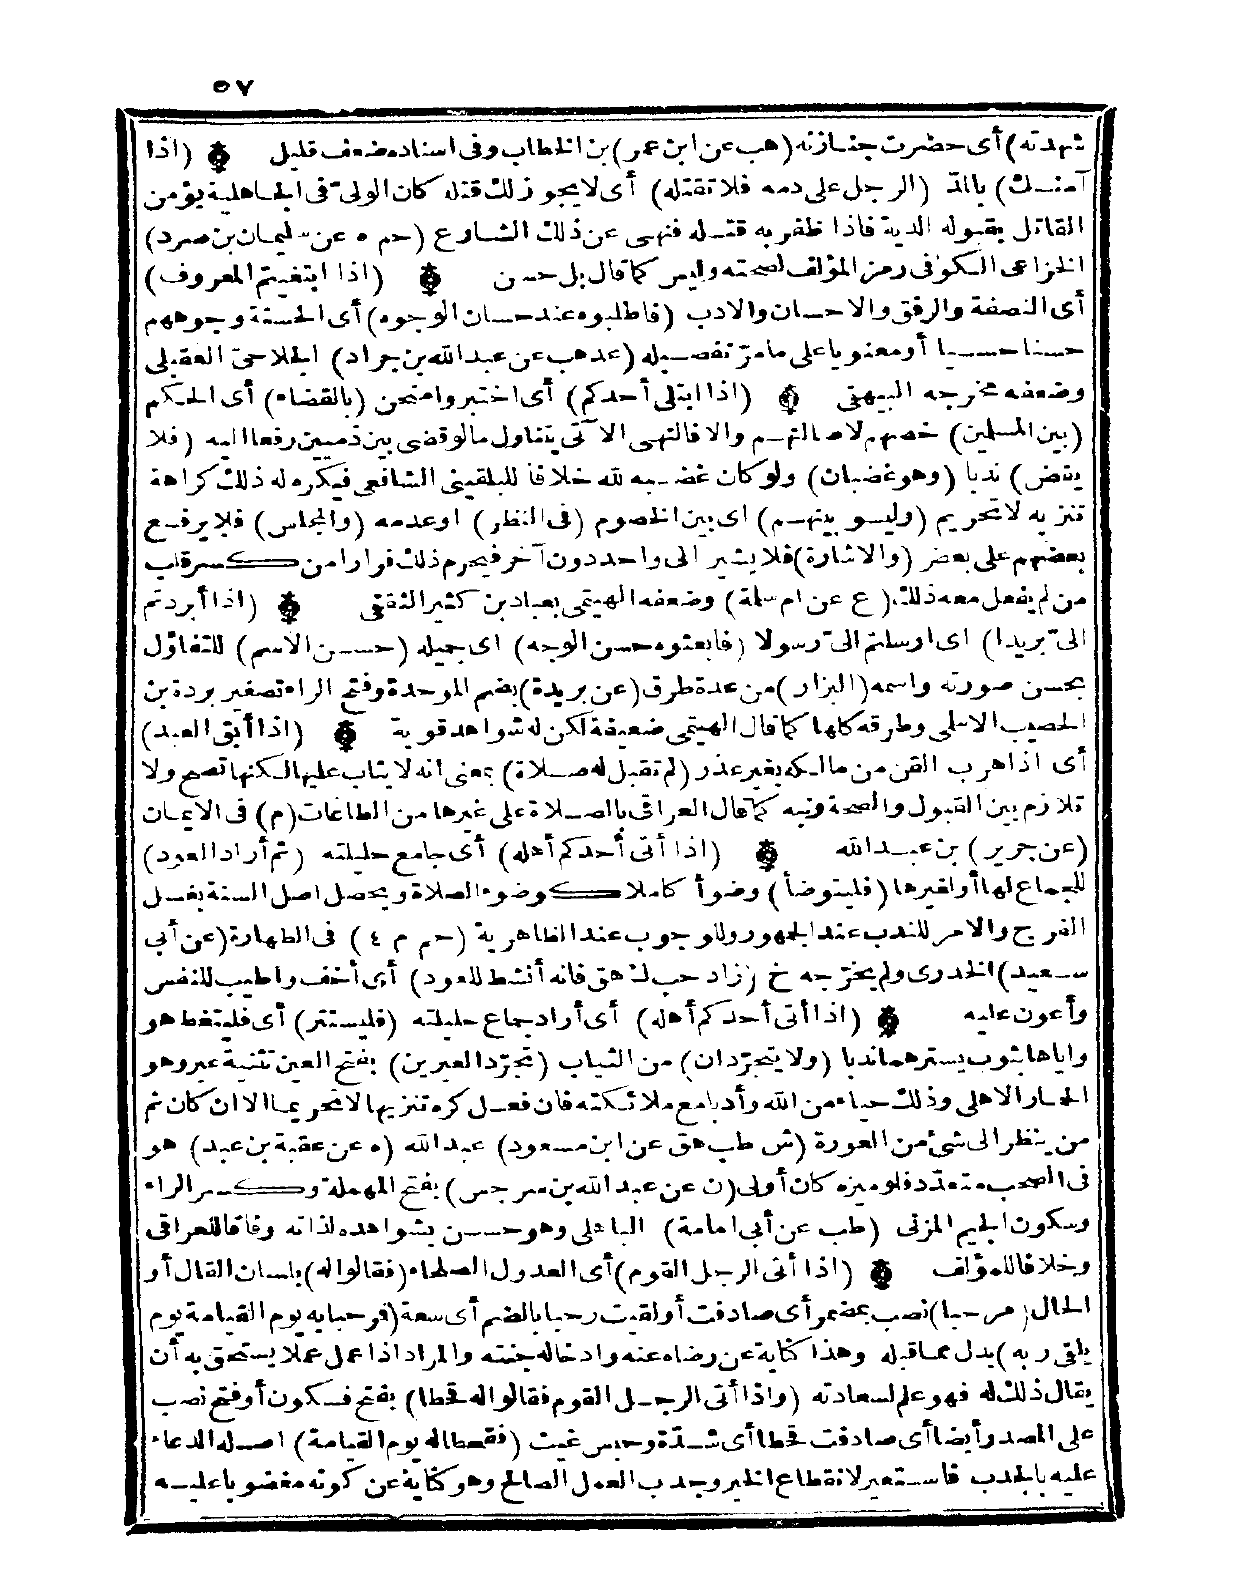 ٥٧
شهدته) أى حضرت جنازته (هب عن ابن عمر) بن الخطاب وفى اسناده ضعف قليل ۞ (اذا
آمنـك) بالمدّ (الرجل على دمه فلا تقتله) أى لا يجوز لك قتله كان الولىّ فى الجاهلية يؤمن
القاتل بقبوله الدية فاذا ظفر به قتله فنهى عن ذلك الشارع (حم ه عن سليمان بن صرد)
الخزاعى الكوفى رمز المؤلف لصحته وليس كما قال بل حسن ۞ (اذا ابتغيتم المعروف)
أى النصفة والرفق والاحسان والادب (فاطلبوه عند حسان الوجوه) أى الحسنة وجوههم
حسنا حسيا أو معنويا على ما مرّ تفصيله (عد هب عن عبد الله بن جراد) الخفاجى العقيلى
وضعفه مخرجه البيهقى ۞ (اذا ابتلى أحدكم) أى اختبر وامتحن (بالقضاء) أى الحكم
(بين المسلين) خصهم لاصالتهم والا فالنهى الآتى يتناول ما لو قضى بين ذميين رفعا اليه (فلا
يقض) ندبا (وهو غضبان) ولو كان غضبه لله خلافا للبلقينى الشافعى فيكره له ذلك كراهة
تنزيه لا تحريم (وليسو بينهم) اى بين الخصوم (فى النظر) اوعدمه (والمجلس) فلا يرفع
بعضهم على بعض (والاشارة) فلا يشير الى واحد دون آخر فيحرم ذلك فرارا من كسر قلب
من لم يفعل معه ذلك (ع عن ام سلمة) وضعفه الهيتمى بعباد بن كثير الثقفى ۞ (اذا أبردتم
الىّ بريدا) اى ارسلتم الىّ رسولا (فابعثوه حسن الوجه) اى جميله (حسن الاسم) للتفاؤل
بحسن صورته واسمه (البزار) من عدة طرق (عن بريدة) بضم الموحدة وفتح الراء تصغير بردة بن
الحصيب الاسلمى وطرقه كلها كما قال الهيتمى ضعيفة لكن له شواهد قوية ۞ (اذا أبق العبد)
أى اذا هرب القن من مالكه بغير عذر (لم تقبل له صلاة) بمعنى انه لا يثاب عليها لكنها تصح ولا
تلازم بين القبول والصحة ونبه كما قال العراقى بالصلاة على غيرها من الطاعات (م) فى الايمان
(عن جرير) بن عبد الله ۞ (اذا أتى أحدكم أهله) أى جامع حليلته (ثم أراد العود)
للجماع لها أو لغيرها (فليتوضأ) وضوأ كاملا كوضوء الصلاة ويحصل اصل السنة بغسل
الفرج والامر للندب عند الجمهور وللوجوب عند الظاهرية (حم م ٤) فى الطهارة (عن أبى
سعيد) الخدرى ولم يخرّجه خ (زاد حب ك هق فانه أنشط للعود) أى أخف واطيب للنفس
وأعون عليه ۞ (اذا أتى أحدكم أهله) أى أراد جماع حليلته (فليستتر) أى فليتغط هو
واياها بثوب يسترهما ندبا (ولا يتجرّدان) من الثياب (تجرّد العيرين) بفتح العين تثنية عير وهو
الحمار الاهلى وذلك حياء من الله وأدبا مع ملائكته فان فعل كره تنزيها لا تحريما الا ان كان ثم
من ينظر الى شئ من العورة (ش طب هق عن ابن مسعود) عبد الله (ه عن عقبة بن عبد) هو
فى الصحب متعدّد فلو ميزه كان أولى (ن عن عبد الله بن سرجس) بفتح المهملة وكسر الراء
وسكون الجيم المزنى (طب عن أبى امامة) الباهلى وهو حسن بشواهده لذاته وفاقا للعراقى
وخلافا للمؤلف ۞ (اذا أتى الرجل القوم) أى العدول الصلحاء (فقالوا له) بلسان القال أو
الحال (مرحبا) نصب بمضمر أى صادفت أو لقيت رحبا بالضم أى سعة (فرحبا به يوم القيامة يوم
يلقى ربه) بدل مما قبله وهذا كناية عن رضاه عنه وادخاله جنته والمراد اذا عمل عملا يستحق به أن
يقال ذلك له فهو علم لسعادته (واذا أتى الرجل القوم فقالوا له قحطا) بفتح فسكون أو فتح نصب
على المصدر أيضا أى صادفت قحطا أى شدّة وحبس غيث (فقحطا له يوم القيامة) اصله الدعاء
عليه بالجدب فاستعير لانقطاع الخير وجدب العمل الصالح وهو كناية عن كونه مغضوبا عليه